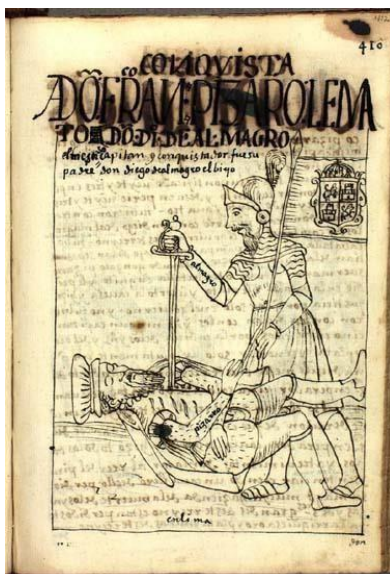 410
CONQVISTA
A DŌ FRANco PIZAROLEMA
TO DŌ DI DE AL MAGRO
el mestiso capitan y conquistador fue su
padre don diego de almagro el biejo
almagro
pizarro
en lima